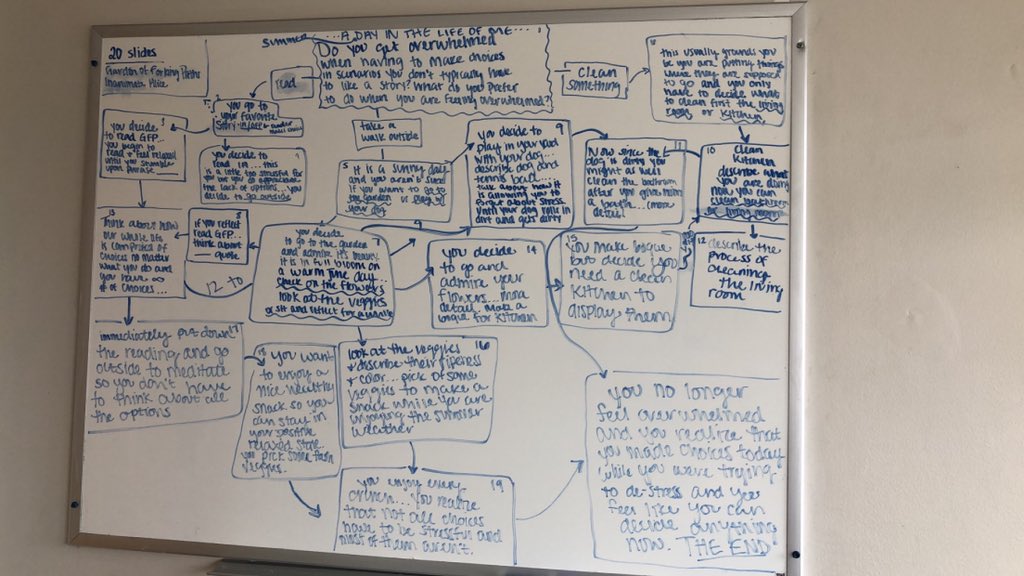 20 slides
Garden of Forking Paths
Inanimate Alice
Summer
...A DAY IN THE LIFE OF ONE...
Do you get overwhelmed
when having to make choices
in scenarios you don't typically have
to like a story? What do you prefer
to do when you are feeling overwhelmed?
read
clean
something
this usually grounds you
bc you are putting things
where they are supposed
to go and you only
have to decide what
to clean first the living
room or kitchen
you go to
your favorite
story space
take a
walk outside
you decide
to read GFP...
you begin to
read & feel relaxed
until you stumble
upon phrase
you decide to
read IA... this
is a little too stressful for
you
the lack of options... you
decide to
go outside
5
It is a sunny day
and you aren't sure
if you want to go to
the garden or play w/
your dog
9
you decide to
play in your yard
with your dog...
describe dog and
tennis ball...
talk about how it
is allowing you to
forget about stress
until your dog rolls in
dirt and gets dirty
11
Now since the
dog is dirty you
might as well
clean the bathroom
after you give him
a bath... (more
detail)
10
clean
kitchen
describe what
you are doing
now you can
clean bathroom
or living room
12 describe the
process of
cleaning
the living
room
13
Think about how
our whole life
is comprised of
choices no matter
what you do and
you have
# of choices...
8
if you reflect
read GFP...
think about
quote
12 to
7
you decide
to go to the garden
and admire its beauty.
It is in full bloom on
a warm June day...
on the flowers
look at the veggies
or sit and reflect for awhile
14
you decide
to go and
admire your
flowers... more
detail, make a
boque for kitchen
15
You make boque
but decide you
need a clean
kitchen to
display them
17
immediately put down
the reading and go
outside to meditate
so you don't have
to think about all
the options
18 you want
to enjoy a
nice healthy
snack so you
can stay in
your positive
relaxed state...
you pick some
veggies
16
look at the veggies
& describe their ripeness
& color... pick of some
veggies to make a
snack while you are
enjoying the summer
weather
19
you enjoy every
crunch... You realize
that not all choices
have to be stressful and
most of them aren't.
you no longer
feel overwhelmed
and you realize that
you made choices today
while you were trying
to de-stress and you
feel like you can
decide anything
now. THE END